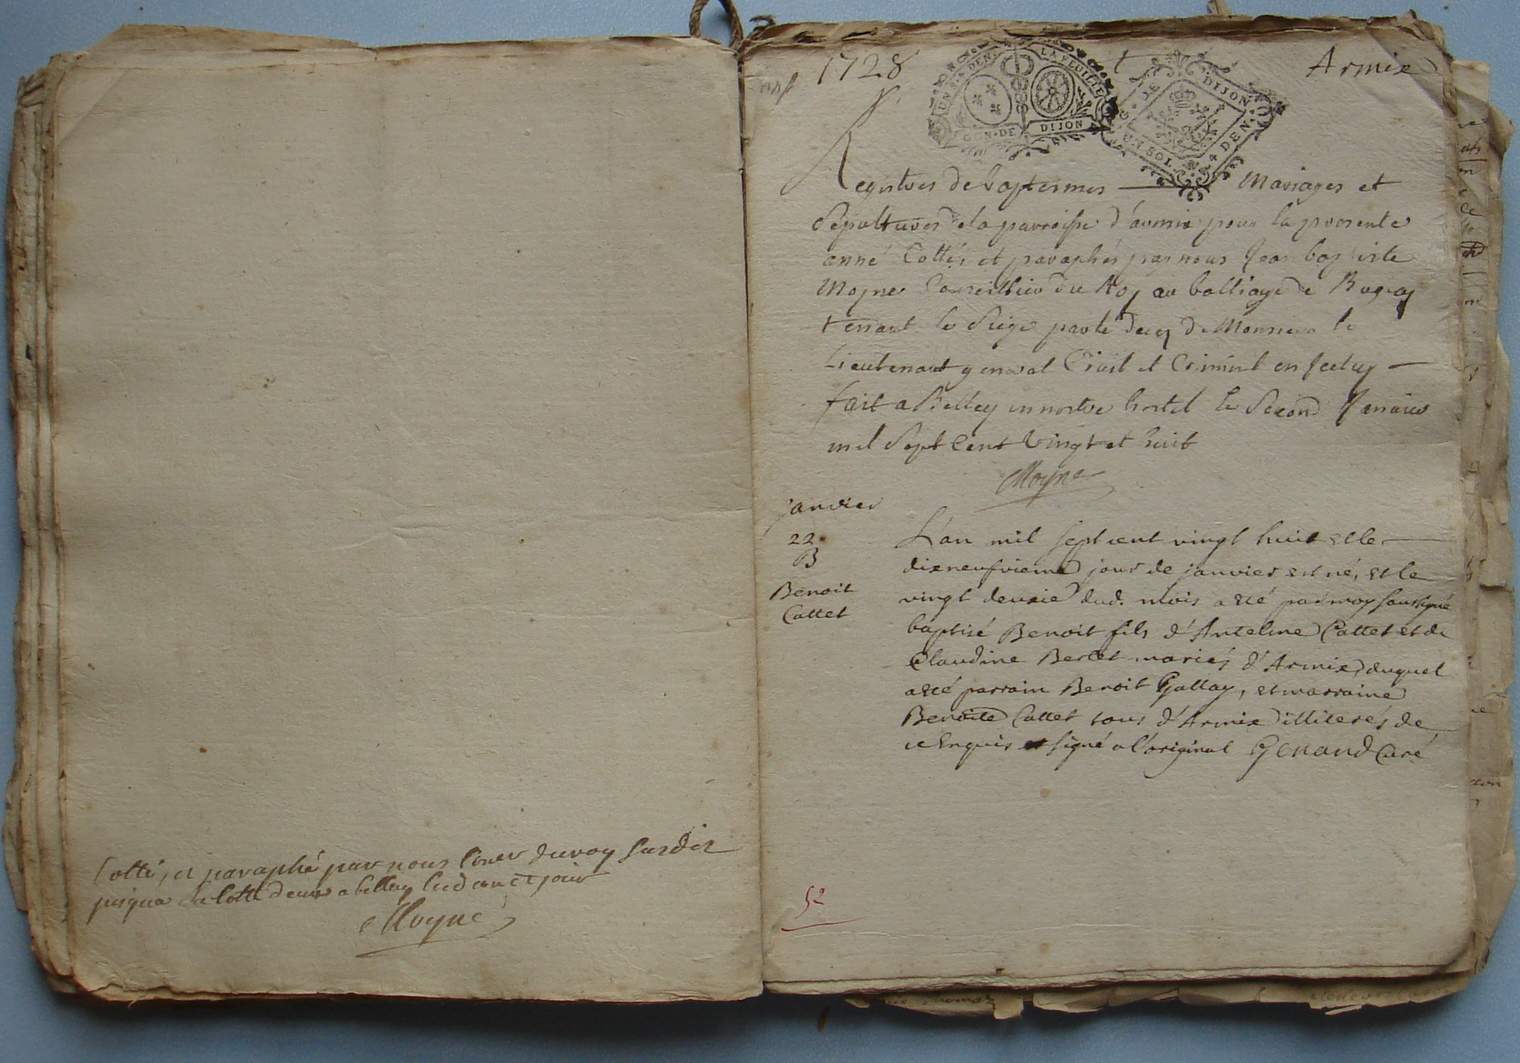 Cotté, et paraphé par nous Coner du roy susdit
jusqua la cotte deux a belley led an et jour
Moyne
1728
Armix
UN S. 4 DEN. LA FEUILLE
GEN. DE DIJON
G. DE DIJON
UN SOL 4 DEN.
Registres de baptesmes Mariages et
Sepultures de la parroisse d'armix pour la presente
anné Cottés et paraphés par nous Jean baptiste
Moyne Conseillier du Roy au balliage de Bugey
tenant le Siege par le deceq de Monsieur le
Lieutenant general Civil et Criminel en jceluy
fait a Belley en nostre hostel le Second Janvier
mil Sept Cent Vingt et huit
Moyne
janvier
22
B
Benoit
Cattet
L'an mil sept cent vingt huit et le
dixneufvieme jour de janvier est né, et le
vingt deuxie dud. mois a eté par moy soussigné
baptisé Benoit fils d'Antelme Cattet et de
Claudine Berlet mariés d'Armix, duquel
a eté parrain Benoit Gallay, et marraine
Benoite Cattet tous d'Armix illiterés de
ce Enquis et signé a l'original Genand Curé
52